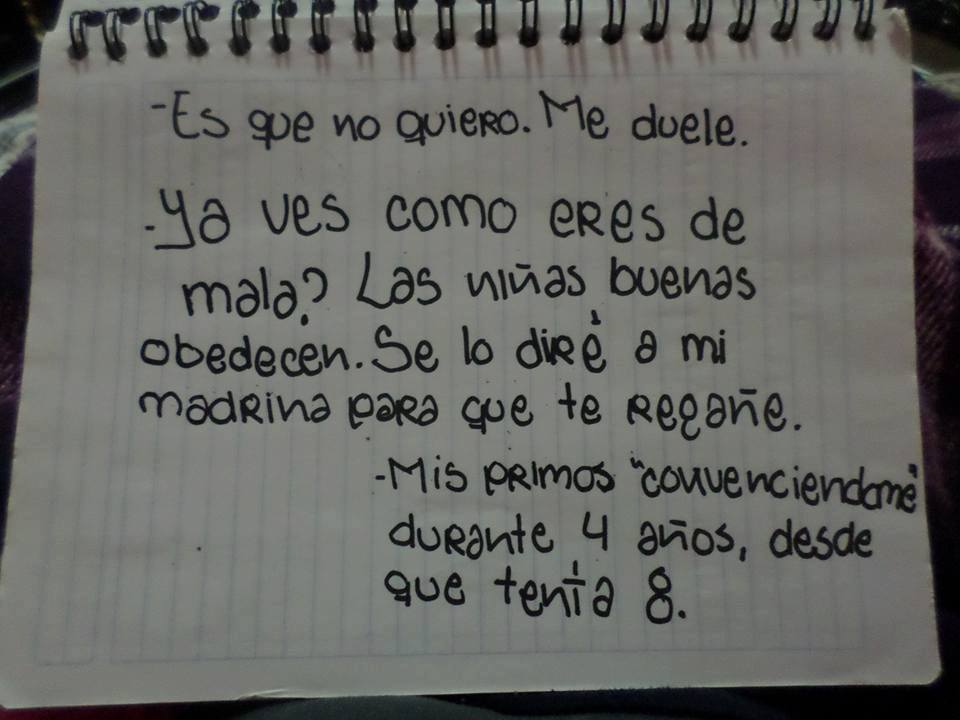 -Es que no quiero. Me duele.
-Ya ves como eres de
mala? Las niñas buenas
obedecen. Se lo diré a mi
madrina para que te regañe.
-Mis primos "convenciendome"
durante 4 años, desde
que tenía 8.